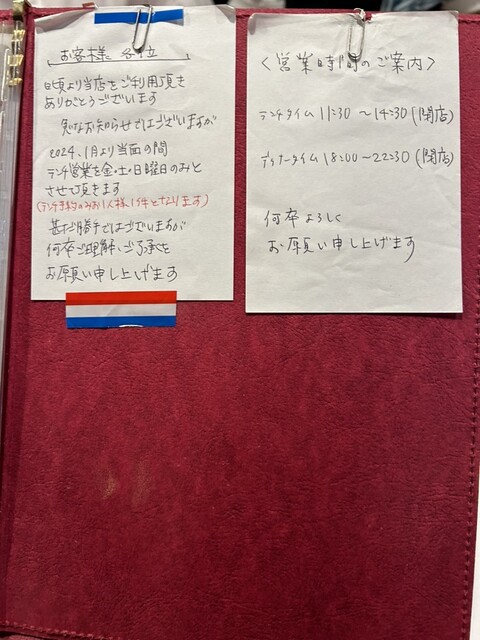 お客様 各位
日頃より当店をご利用頂き
ありがとうございます
急なお知らせではございますが
2024、1月より当面の間
ランチ営業を金・土・日曜日のみと
させて頂きます
(ランチ予約のみお1人様1件となります)
甚だご勝手ではございますが
何卒ご理解、ご了承を
お願い申し上げます
<営業時間のご案内>
ランチタイム 11:30 ~14:30 (閉店)
ディナータイム 18:00~22:30 (閉店)
何卒よろしく
お願い申し上げます